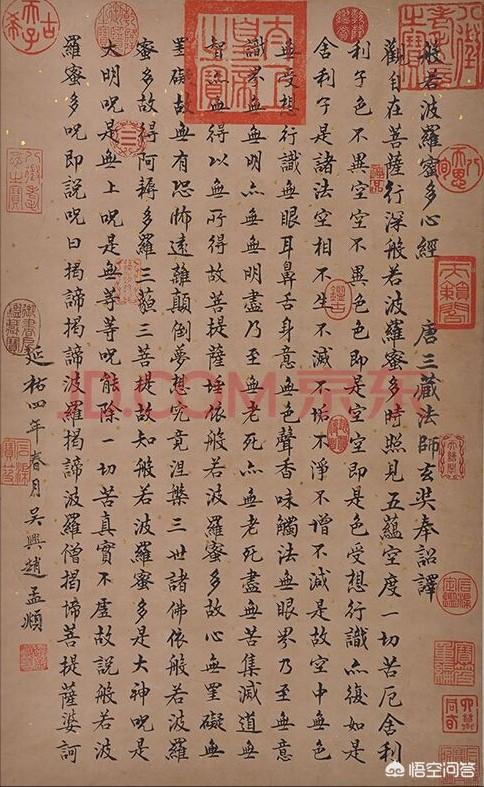 般若波羅蜜多心經　唐三藏法師玄奘奉詔譯
觀自在菩薩行深般若波羅蜜多時照見五蘊空度一切苦厄舍利
利子色不異空空不異色色即是空空即是色受想行識亦復如是
舍利子是諸法空相不生不滅不垢不淨不增不減是故空中無色
無受想行識無眼耳鼻舌身意無色聲香味觸法無眼界乃至無意
識界無無明亦無無明盡乃至無老死亦無老死盡無苦集滅道無
智亦無得以無所得故菩提薩埵依般若波羅蜜多故心無罣礙無
罣礙故無有恐怖遠離顛倒夢想究竟涅槃三世諸佛依般若波羅
蜜多故得阿耨多羅三藐三菩提故知般若波羅蜜多是大神呪是
大明呪是無上呪是無等等呪能除一切苦真實不虛故說般若波
羅蜜多呪即說呪曰揭諦揭諦波羅揭諦波羅僧揭諦菩提薩婆訶
延祐四年春月吴興趙孟頫
太上皇帝之寶
古希天子
天籟閣
JD.COM 京东
悟空问答